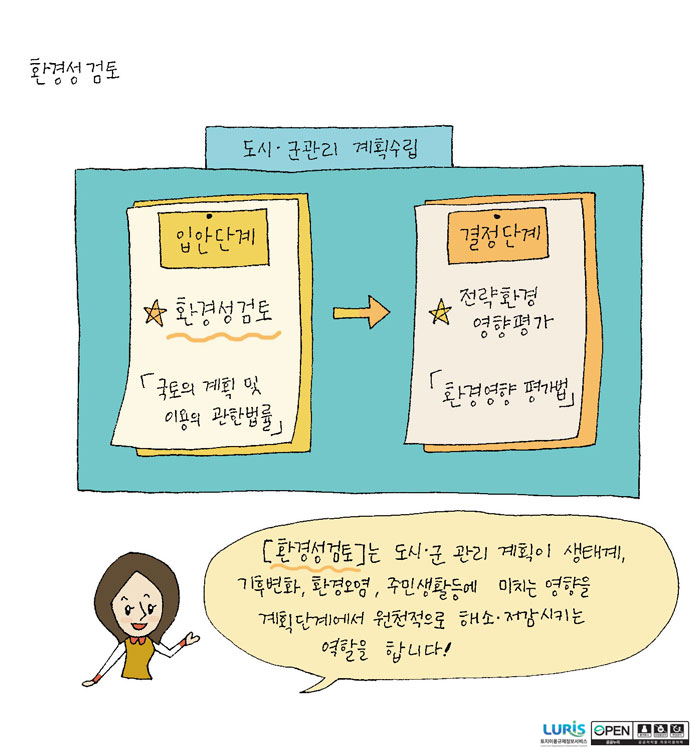 환경성 검토
도시·군관리 계획수립
입안단계
환경성검토
「국토의 계획 및
이용의 관한법률」
결정단계
전략환경
영향평가
「환경영향 평가법」
[환경성검토]는 도시·군 관리 계획이 생태계,
기후변화, 환경오염, 주민생활등에 미치는 영향을
계획단계에서 원천적으로 해소·저감시키는
역할을 합니다!
LURIS
토지이용규제정보서비스
OPEN
공공누리